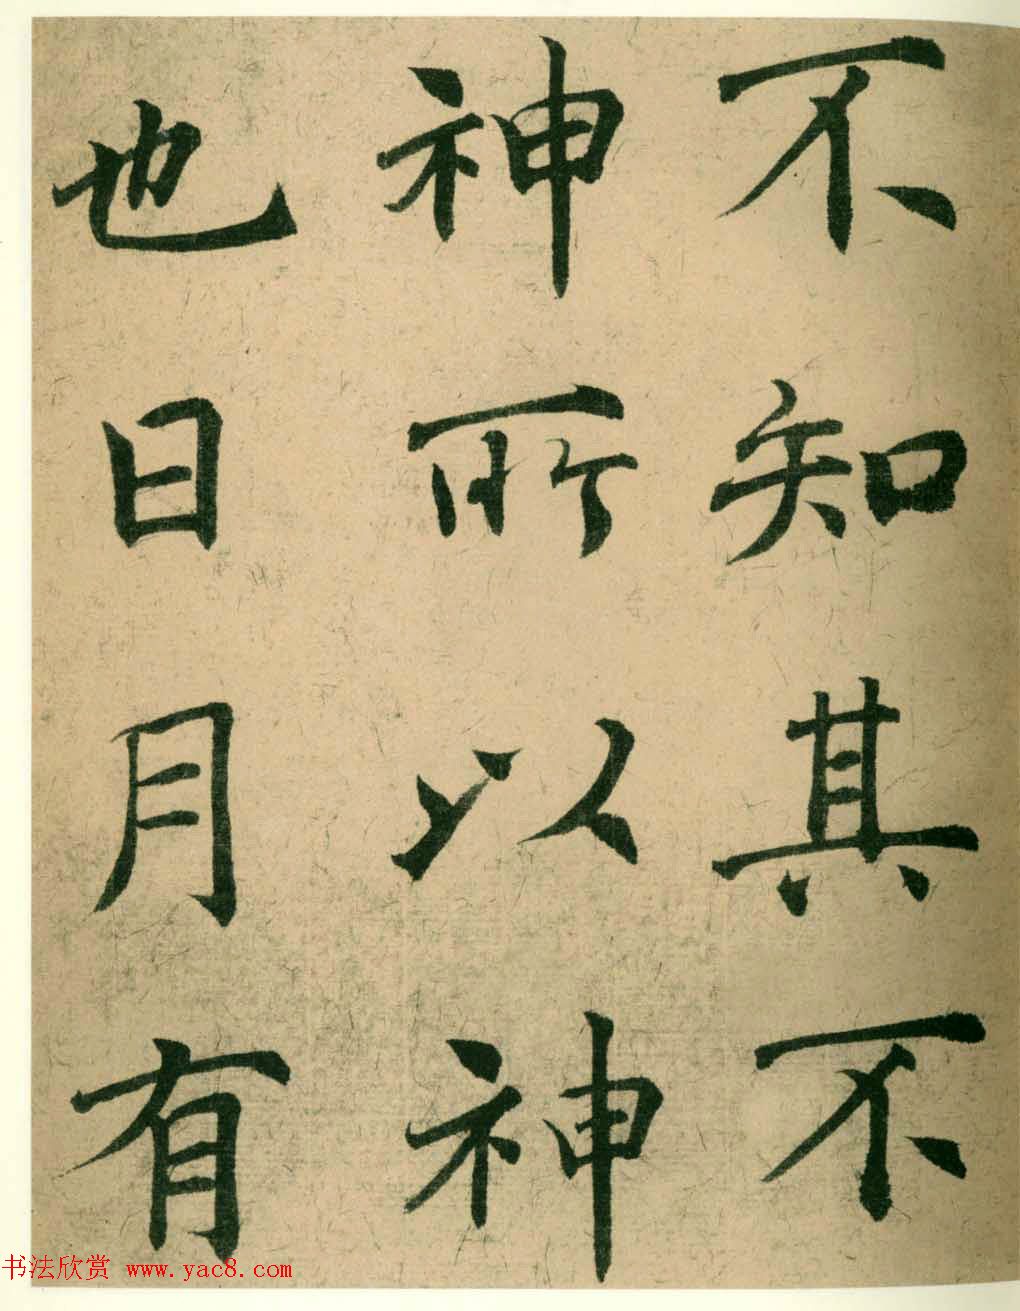 不知其不
神所以神
也日月有
书法欣赏 www.yac8.com